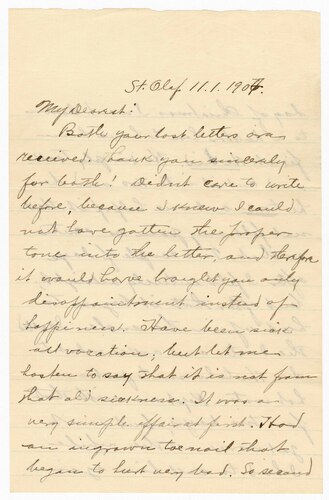 St. Olaf 11.1.1907.
My Dearest:
Both your last letters was
received. Thank you sincerely
for both! Didn't care to write
before, because I knew I could
not have gotten the proper
tone into the letter, and therefore
it would have brought you only
disappointment instead of
happiness. Have been sick
all vacation, but let me
hasten to say that it is not from
that old sickness. It was a
very simple affair at first. Had
an ingrown toenail that
began to hurt very bad. So second